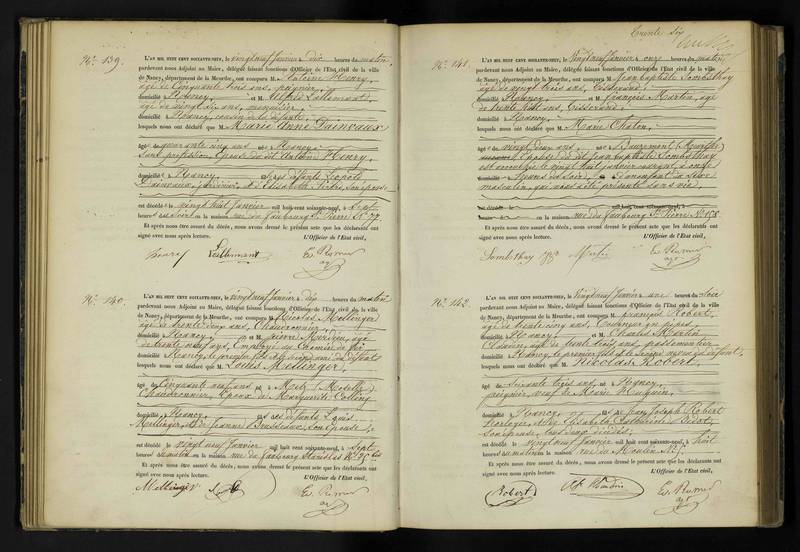 No. 139.
L'AN MIL HUIT CENT SOIXANTE-NEUF, le vingt neuf Janvier dix heures du matin,
pardevant nous Adjoint au Maire, délégué faisant fonctions d'Officier de l'Etat civil de la ville
de Nancy, département de la Meurthe, ont comparu M. Antoine Henry,
âgé de Cinquante trois ans, peignier,
domicilié à Nancy, et M.
âgé de vingt six ans,
domicilié à Nancy, cousin de la défunte,
lesquels nous ont déclaré que M. Marie Anne Dainvaux
âgée quarante cinq ans née à Nancy
Sans profession, Epouse du dit Antoine Henry,
domicilié à Nancy, et
Dainvaux, jardinier, et d'Elisabeth son épouse
est décédé le vingt huit Janvier mil huit cent soixante-neuf, à Sept
heures du soir en la maison rue du faubourg St. Pierre No. 77.
Et après nous être assuré du décès, nous avons dressé le présent acte que les déclarants ont
signé avec nous après lecture. L'Officier de l'Etat civil,
henry Lallemant
No. 140.
L'AN MIL HUIT CENT SOIXANTE-NEUF, le vingt neuf Janvier à dix heures du matin
pardevant nous Adjoint au Maire, délégué faisant fonctions d'Officier de l'Etat civil de la ville
de Nancy, département de la Meurthe, ont comparu M. Nicolas Mellinger
âgé de trente cinq ans, Chaudronnier,
et M. pierre âgé
de trente sept ans, Employé au Chemin de fer
domicilié à Nancy, le premier fils et le second ami du défunt
lesquels nous ont déclaré que M. Louis Mellinger,
âgé de Cinquante neuf ans né à Metz (Moselle)
Chaudronnier, Epoux de Marguerite Colling
domicilié à Nancy, et
Mellinger, et de Jeanne son Epouse
est décédé le vingt neuf Janvier mil huit cent soixante-neuf, à Sept
heures du matin en la maison rue du faubourg Stanislas No. bis
Et après nous être assuré du décès, nous avons dressé le présent acte que les déclarants ont
signé avec nous après lecture. L'Officier de l'Etat civil,
Mellinger
trente six
No. 141.
L'AN MIL HUIT CENT SOIXANTE-NEUF, le vingt neuf Janvier à onze heures du matin,
pardevant nous Adjoint au Maire, délégué faisant fonctions d'Officier de l'Etat civil de la ville
de Nancy, département de la Meurthe, ont comparu M. Jean baptiste Sombsthay
âgé de vingt trois ans, Tisserand,
domicilié à Nancy, et M. François Martin, âgé
de trente huit ans, Tisserand,
domicilié à Nancy,
lesquels nous ont déclaré que M. Marie Chaton,
âgée vingt deux ans, née à
Epouse du dit Jean baptiste Sombsthay
est accouchée le vingt huit Janvier courant, à onze
heures du soir, d'un enfant du sexe
masculin, qui nous a été présenté sans vie,
est décédé le mil huit cent soixante-neuf, à
heures du en la maison rue du faubourg St. Pierre No. 158.
Et après nous être assuré du décès, nous avons dressé le présent acte que les déclarants ont
signé avec nous après lecture. L'Officier de l'Etat civil,
Sombsthay Martin
No. 142.
L'AN MIL HUIT CENT SOIXANTE-NEUF, le vingt neuf Janvier à une heures du soir
pardevant nous Adjoint au Maire, délégué faisant fonctions d'Officier de l'Etat civil de la ville
de Nancy, département de la Meurthe, ont comparu M. françois Robert,
âgé de trente cinq ans, Tourneur en pipes,
domicilié à Nancy, et M. Charles
âgé de trente trois ans, passementier
domicilié à Nancy, le premier fils et le second neveu du défunt,
lesquels nous ont déclaré que M. Nicolas Robert,
âgé de Soixante trois ans né à Nancy,
peignier, veuf de Marie
domicilié à Nancy, fils de Jean Joseph Robert
horloger, et de Elisabeth Catherine
Son épouse, tous deux décédés,
est décédé le vingt neuf Janvier mil huit cent soixante-neuf, à huit
heures du matin en la maison rue du Moulin No.
Et après nous être assuré du décès, nous avons dressé le présent acte que les déclarants ont
signé avec nous après lecture. L'Officier de l'Etat civil,
Robert